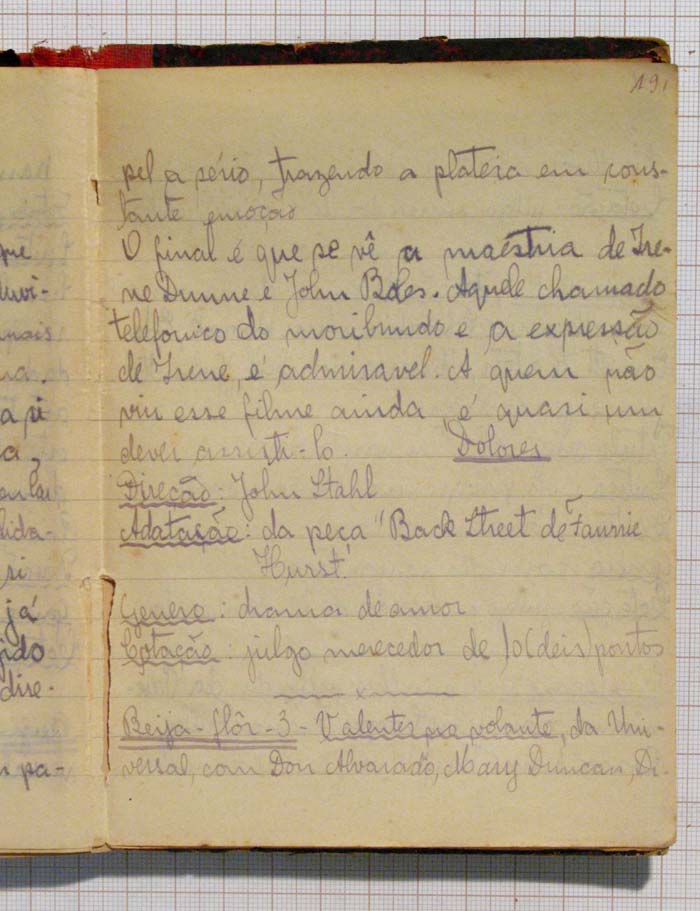 191
pel a sério, trazendo a plateia em cons-
tante emoção
O final é que se vê a maéstria de Ire-
ne Dunne e John Boles. Aquele chamado
telefonico do moribundo e a expressão
de Irene, é admiravel. A quem não
viu esse filme ainda é quasi um
dever assisti-lo. Dolores
Direção: John Stahl
Adatação: da peça "Back Street de Fannie
Hurst."
Genero: drama de amor
Cotação: julgo merecedor de 10 (deis) pontos
x
Beija-flôr-3 - Valentes no volante, da Uni-
versal, com Don Alvarado, Mary Duncan, Di-
que
mais
na.
a si
a,
lida-
si
já
dire-
pa-